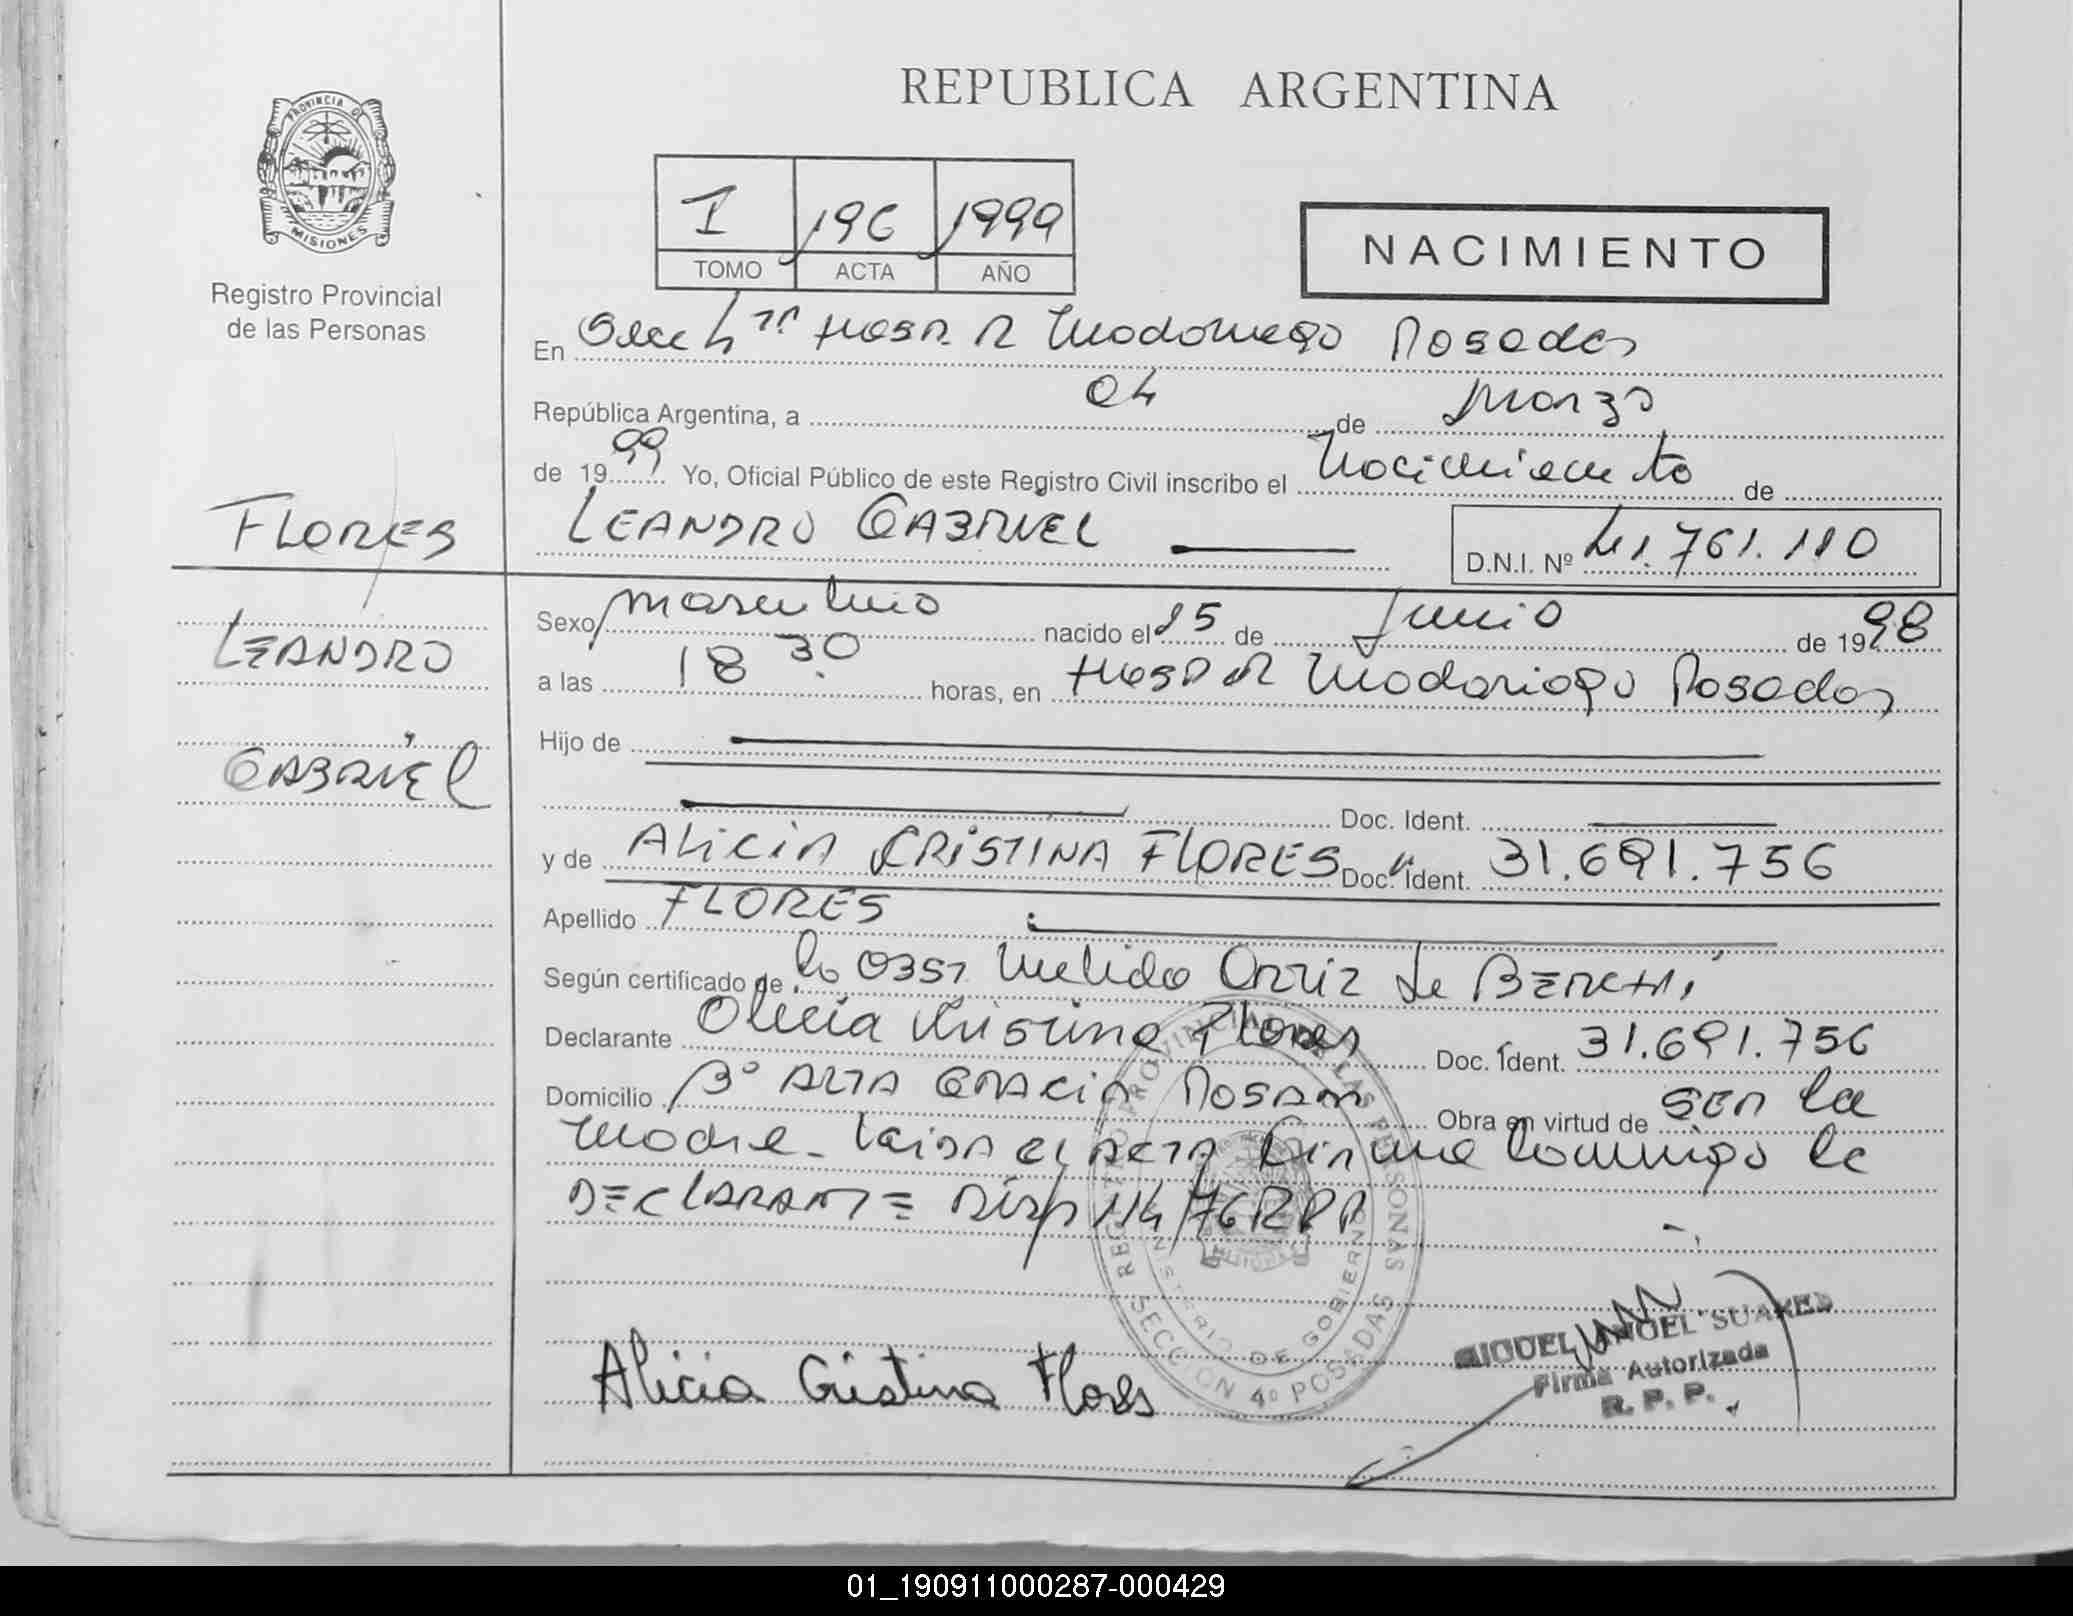 REPUBLICA ARGENTINA
PROVINCIA DE
MISIONES
Registro Provincial
de las Personas
I 196 1999
TOMO ACTA AÑO
NACIMIENTO
En Secc 4ta Hosp R Madariaga Posadas
República Argentina, a 04 de Marzo
de 1999 Yo, Oficial Público de este Registro Civil inscribo el Nacimiento de
FLORES
LEANDRO GABRIEL
D.N.I. Nº 41.761.110
LEANDRO
GABRIEL
Sexo masculino nacido el 15 de Junio de 1998
a las 18 30 horas, en Hosp R Madariaga Posadas
Hijo de
Doc. Ident.
y de ALICIA CRISTINA FLORES Doc. Ident. 31.691.756
Apellido FLORES
Según certificado de la Obst Melida Ortiz de
Declarante Alicia Cristina Flores Doc. Ident. 31.691.756
Domicilio Bº ALTA GRACIA Posadas Obra en virtud de ser la
madre - Leida el acta firma conmigo la
DECLARANTE Disp 114/76 RPP
REGISTRO PROVINCIAL DE LAS PERSONAS
MINISTERIO DE GOBIERNO
SECCION 4º POSADAS
Alicia Cristina Flores
MIGUEL ANGEL SUAREZ
Firma Autorizada
R. P. P.
01_190911000287-000429